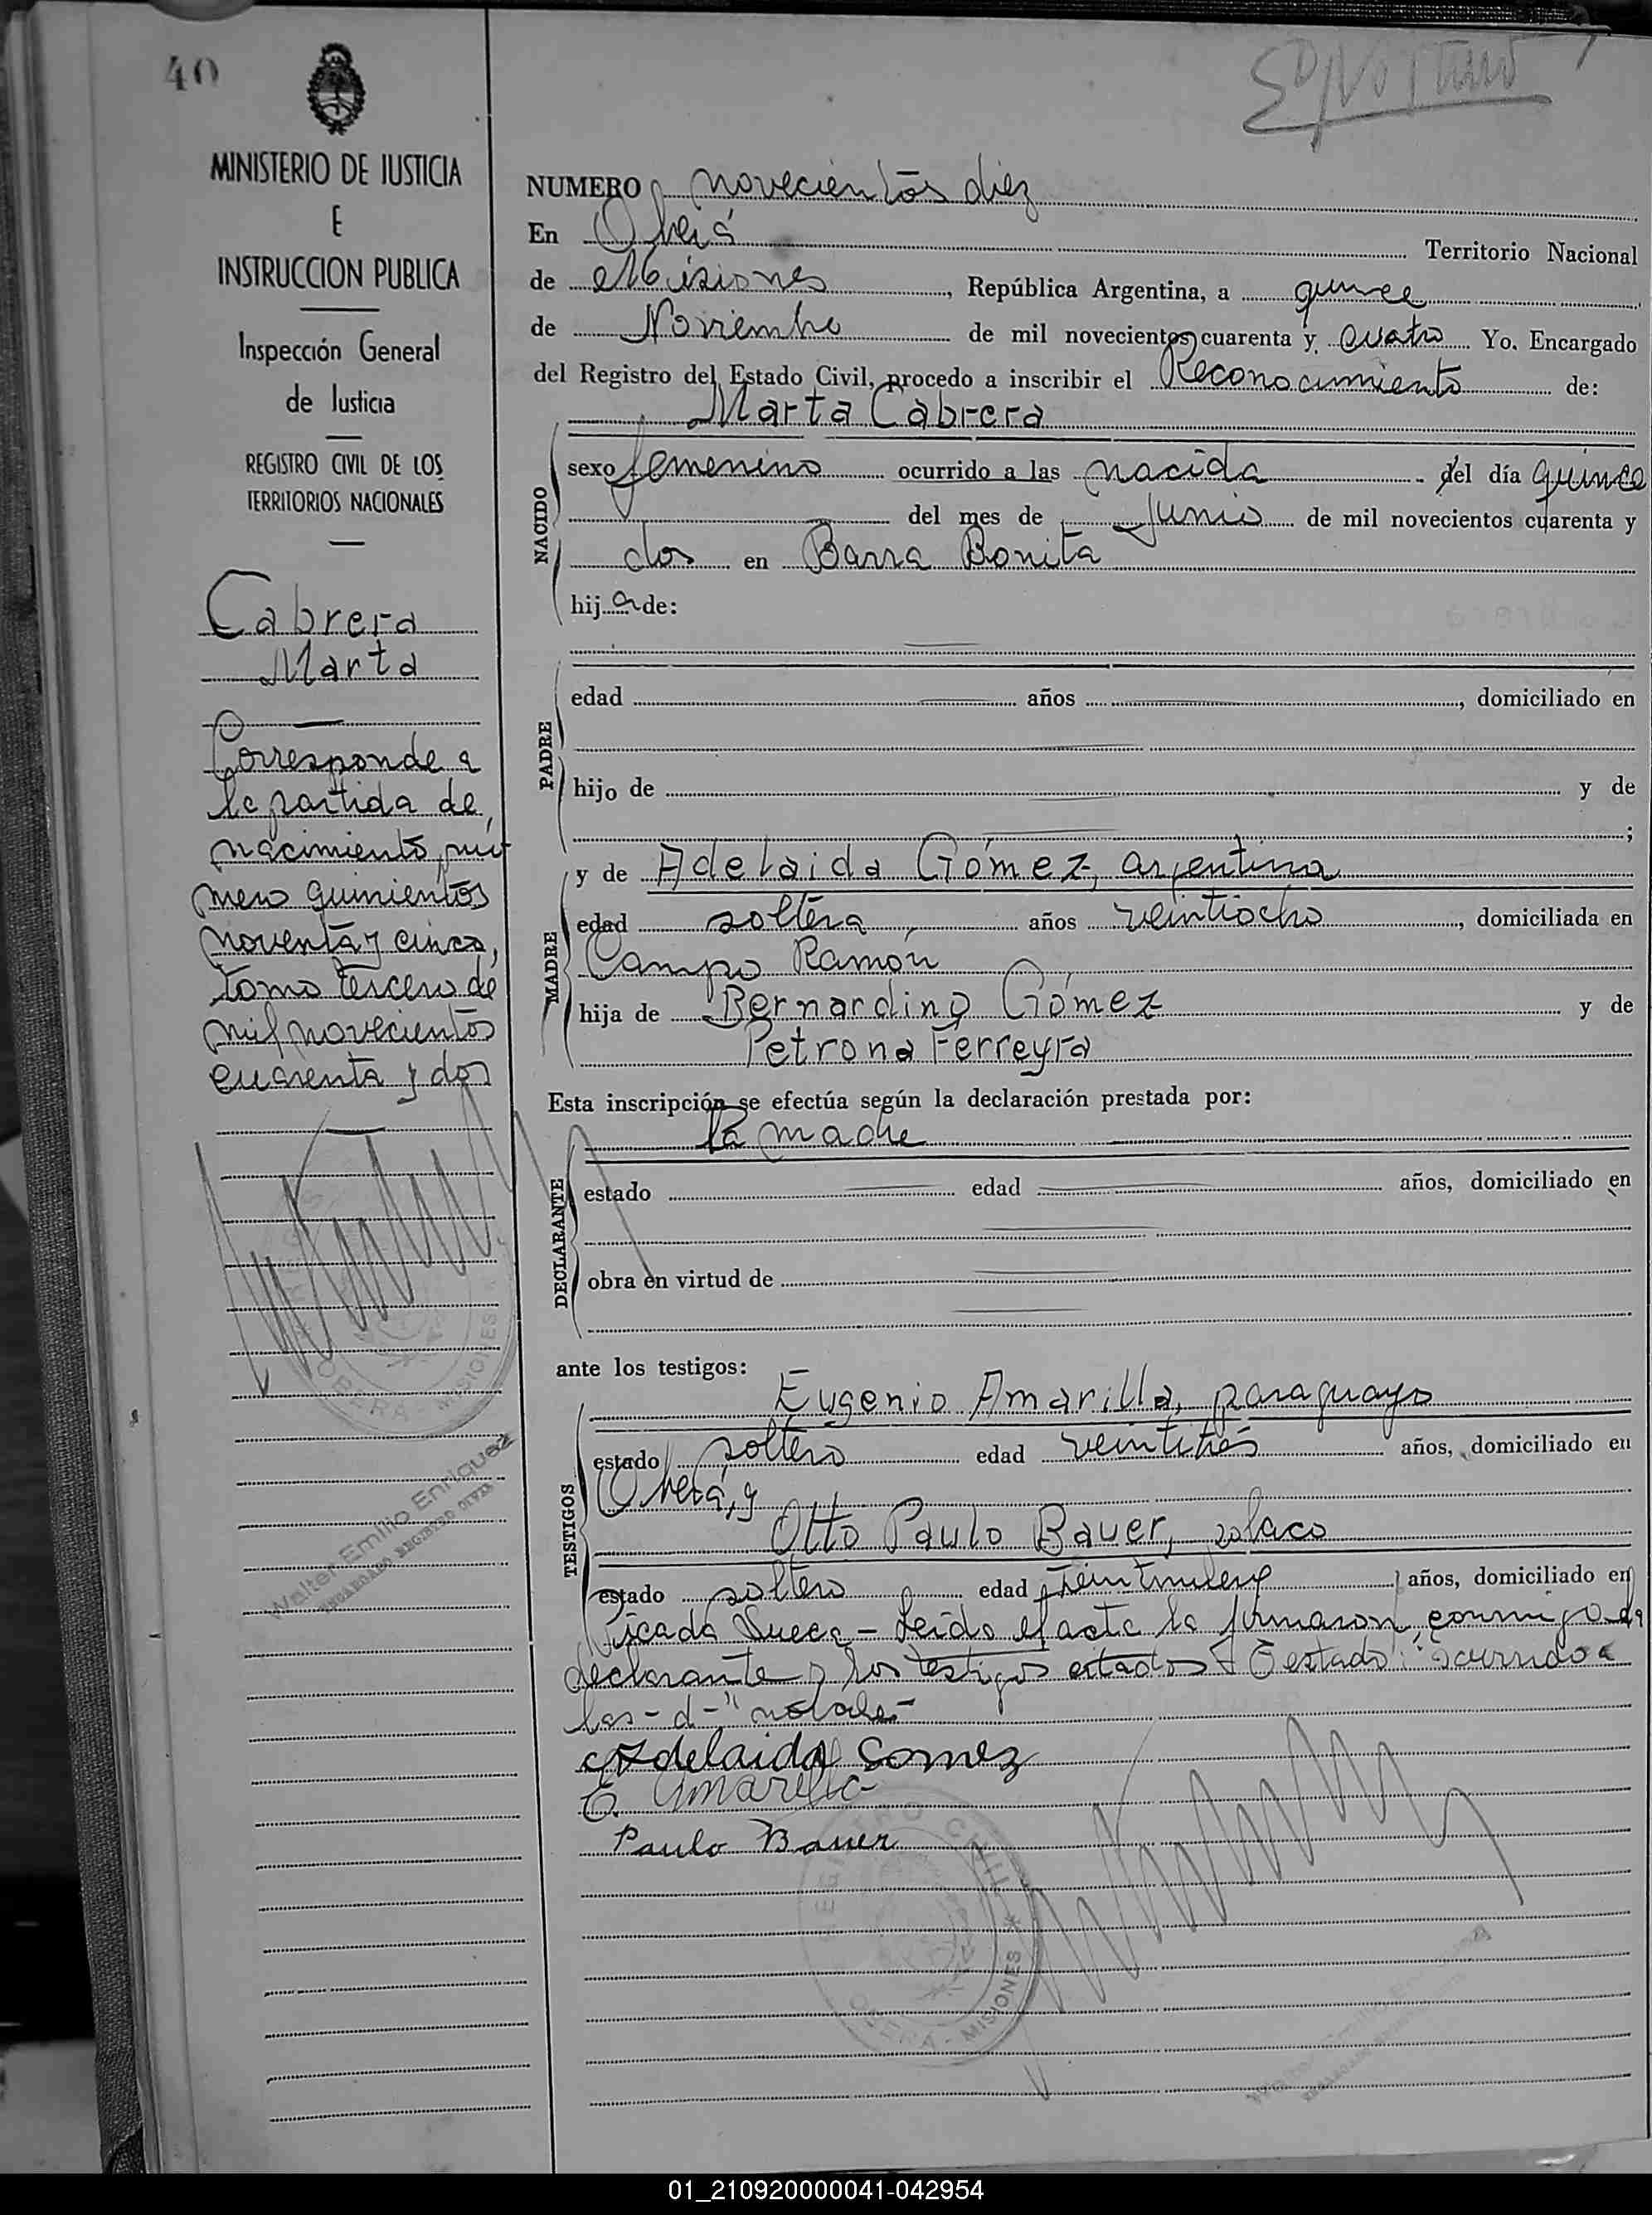 40
MINISTERIO DE JUSTICIA
E
INSTRUCCION PUBLICA
Inspección General
de Justicia
REGISTRO CIVIL DE LOS
TERRITORIOS NACIONALES
Cabrera
Marta
Corresponde a
la partida de
nacimiento nú
mero quinientos
noventa y cinco,
tomo tercero de
mil novecientos
cuarenta y dos
OBERA MISIONES
Walter Emilio Enriquez
ENCARGADO REGISTRO CIVIL
NUMERO novecientos diez
En Oberá Territorio Nacional
de Misiones, República Argentina, a quince
de Noviembre de mil novecientos cuarenta y cuatro Yo. Encargado
del Registro del Estado Civil, procedo a inscribir el Reconocimiento de:
Marta Cabrera
NACIDO
sexo femenino ocurrido a las nacida del día quince
del mes de Junio de mil novecientos cuarenta y
dos en Barra Bonita
hija de:
PADRE
edad años , domiciliado en
hijo de y de
;
MADRE
y de Adelaida Gómez, argentina
edad soltera, años veintiocho, domiciliada en
Campo Ramón
hija de Bernardino Gómez y de
Petrona Ferreyra
Esta inscripción se efectúa según la declaración prestada por:
la madre
DECLARANTE
estado edad años, domiciliado en
obra en virtud de
ante los testigos:
TESTIGOS
Eugenio Amarilla, paraguayo
estado soltero edad veintitrés años, domiciliado en
Oberá, y
Otto Paulo Bauer, polaco
estado soltero edad años, domiciliado en
Picada Sueca - Leída el acta la firmaron conmigo la
declarante y los testigos citados testado: "ocurrido a
las - d -" no vale -
Adelaida Gomez
E. Amarilla
Paulo Bauer
REGISTRO CIVIL
OBERA - MISIONES
01_210920000041-042954